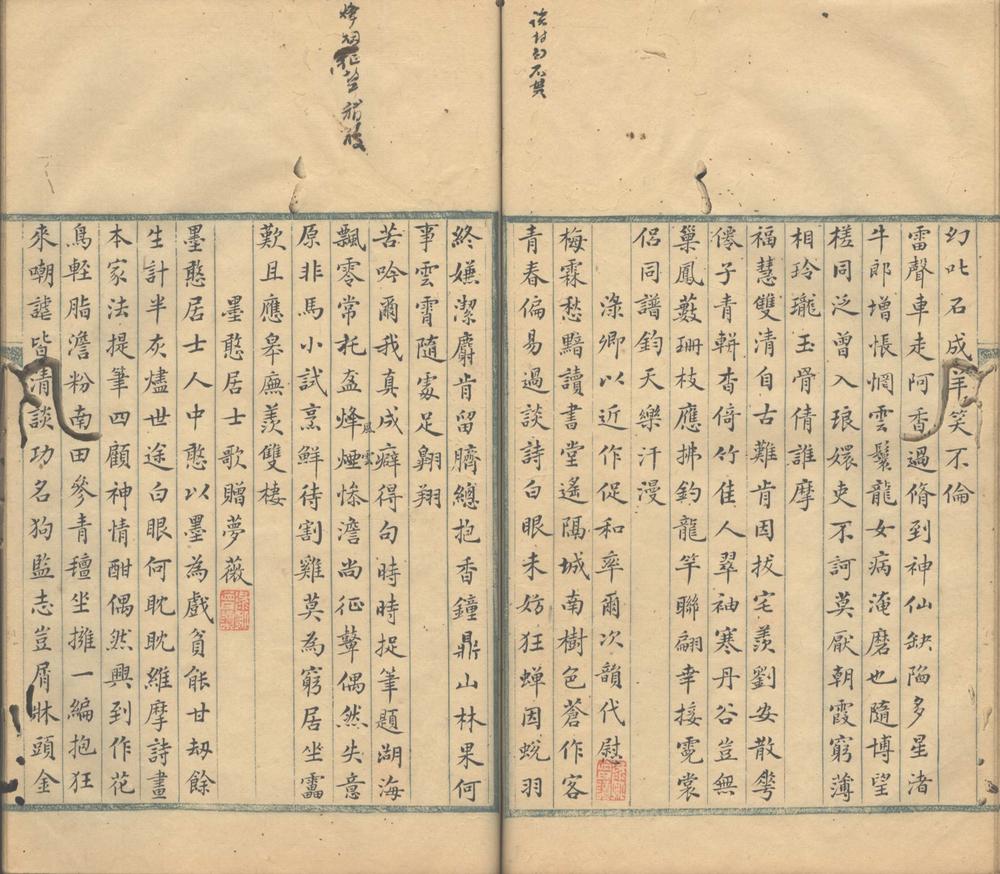 幻叱石成羊笑不倫
雷聲車走阿香過脩到神仙缺陷多星渚
牛郎增悵惘雲鬟龍女病淹磨也隨博望
槎同泛曾入琅嬛吏不訶莫厭朝霞窮薄
相玲瓏玉骨倩誰摩
福慧雙清自古難肯因拔宅羨劉安散花
僊子青軿杳倚竹佳人翠袖寒丹谷豈無
巢鳳藪珊枝應拂釣龍竿聯翩幸接霓裳
侶同譜鈞天樂汗漫
淥卿以近作促和率爾次韻代慰
梅霖愁黯讀書堂遙隔城南樹色蒼作客
青春偏易過談詩白眼未妨狂蟬因蛻羽
終嫌潔麝肯留臍總抱香鐘鼎山林果何
事雲霄隨處足翺翔
苦吟爾我真成癖得句時時捉筆題湖海
飄零常托盋烽煙慘澹尚征鼙偶然失意
風雲
原非馬小試烹鮮待割雞莫為窮居坐靁
歎且應皋廡羨雙棲
墨憨居士歌贈夢薇
墨憨居士人中憨以墨為戲貧能甘劫餘
生計半灰燼世途白眼何眈眈維摩詩畫
本家法提筆四顧神情酣偶然興到作花
鳥輕脂澹粉南田參青氊坐擁一編抱狂
來嘲謔皆清談功名狗監志豈屑牀頭金